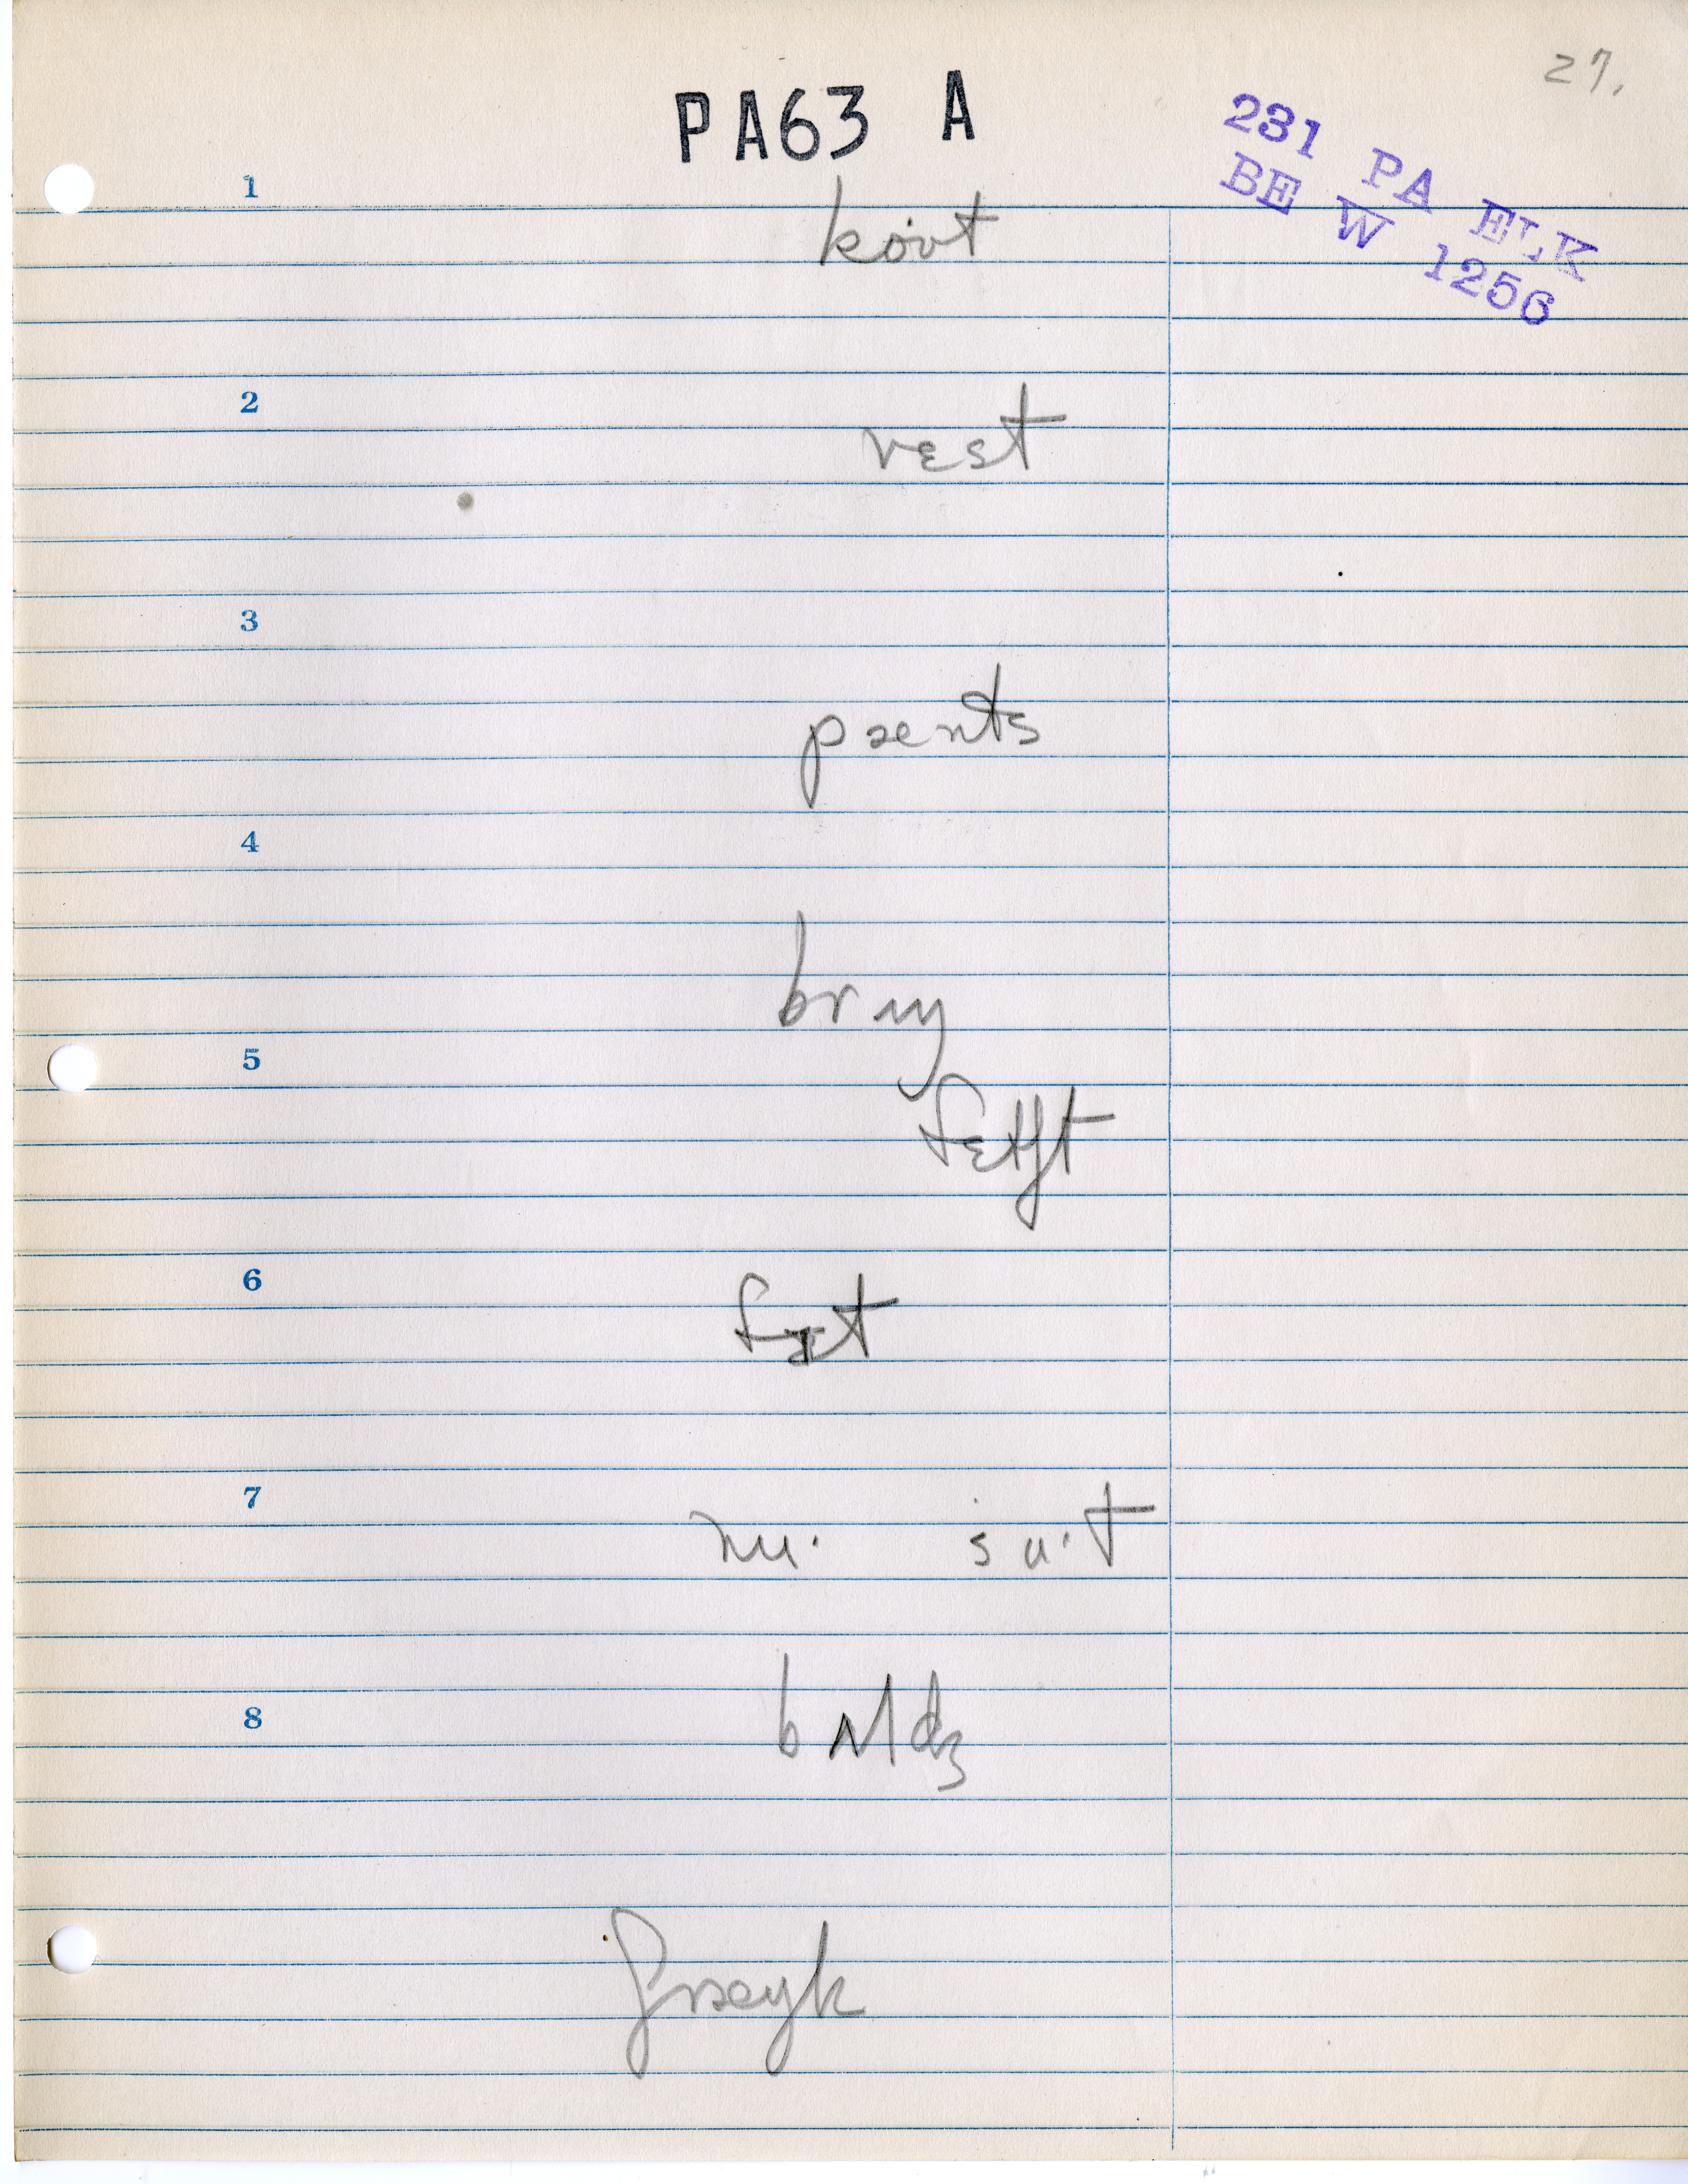 27.
PA63 A
231 PA ELK
BE W 1256
1
koʊt
2
vɛst
3
pænts
4
brɪŋ
5
fɛtʃt
6
fɪt
7
nu· su·t
8
bʌldʒ
ʃræŋk